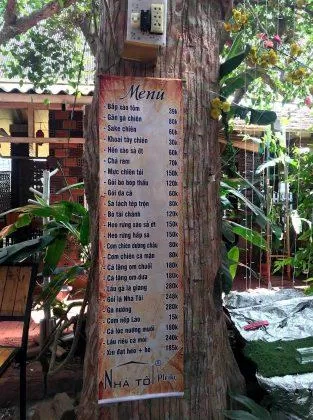 Menu
Bắp xào tôm 39k
Gân gà chiên 80k
Sake chiên 60k
Khoai tây chiên 30k
Hến xào sả ớt 60k
Chả ram 70k
Mực chiên tỏi 150k
Gỏi bò bóp thấu 120k
Gỏi da cá 60k
Sa lách tép trộn 80k
Bò tái chanh 120k
Heo rừng xào sả ớt 150k
Heo rừng hấp sả 150k
Cơm chiên dương châu 80k
Cơm chiên cá mặn 80k
Cá lăng om chuối 180k
Cá lăng om dưa 180k
Lẩu gà lá giang 280k
Gỏi lá Nhà Tôi 248k
Gà nướng 280k
Cơm nếp Lào 15k
Cá lóc nướng muối 180k
Lẩu riêu cá mới 240k
Xiu đạt heo + bò 185k
NHÀ TÔI